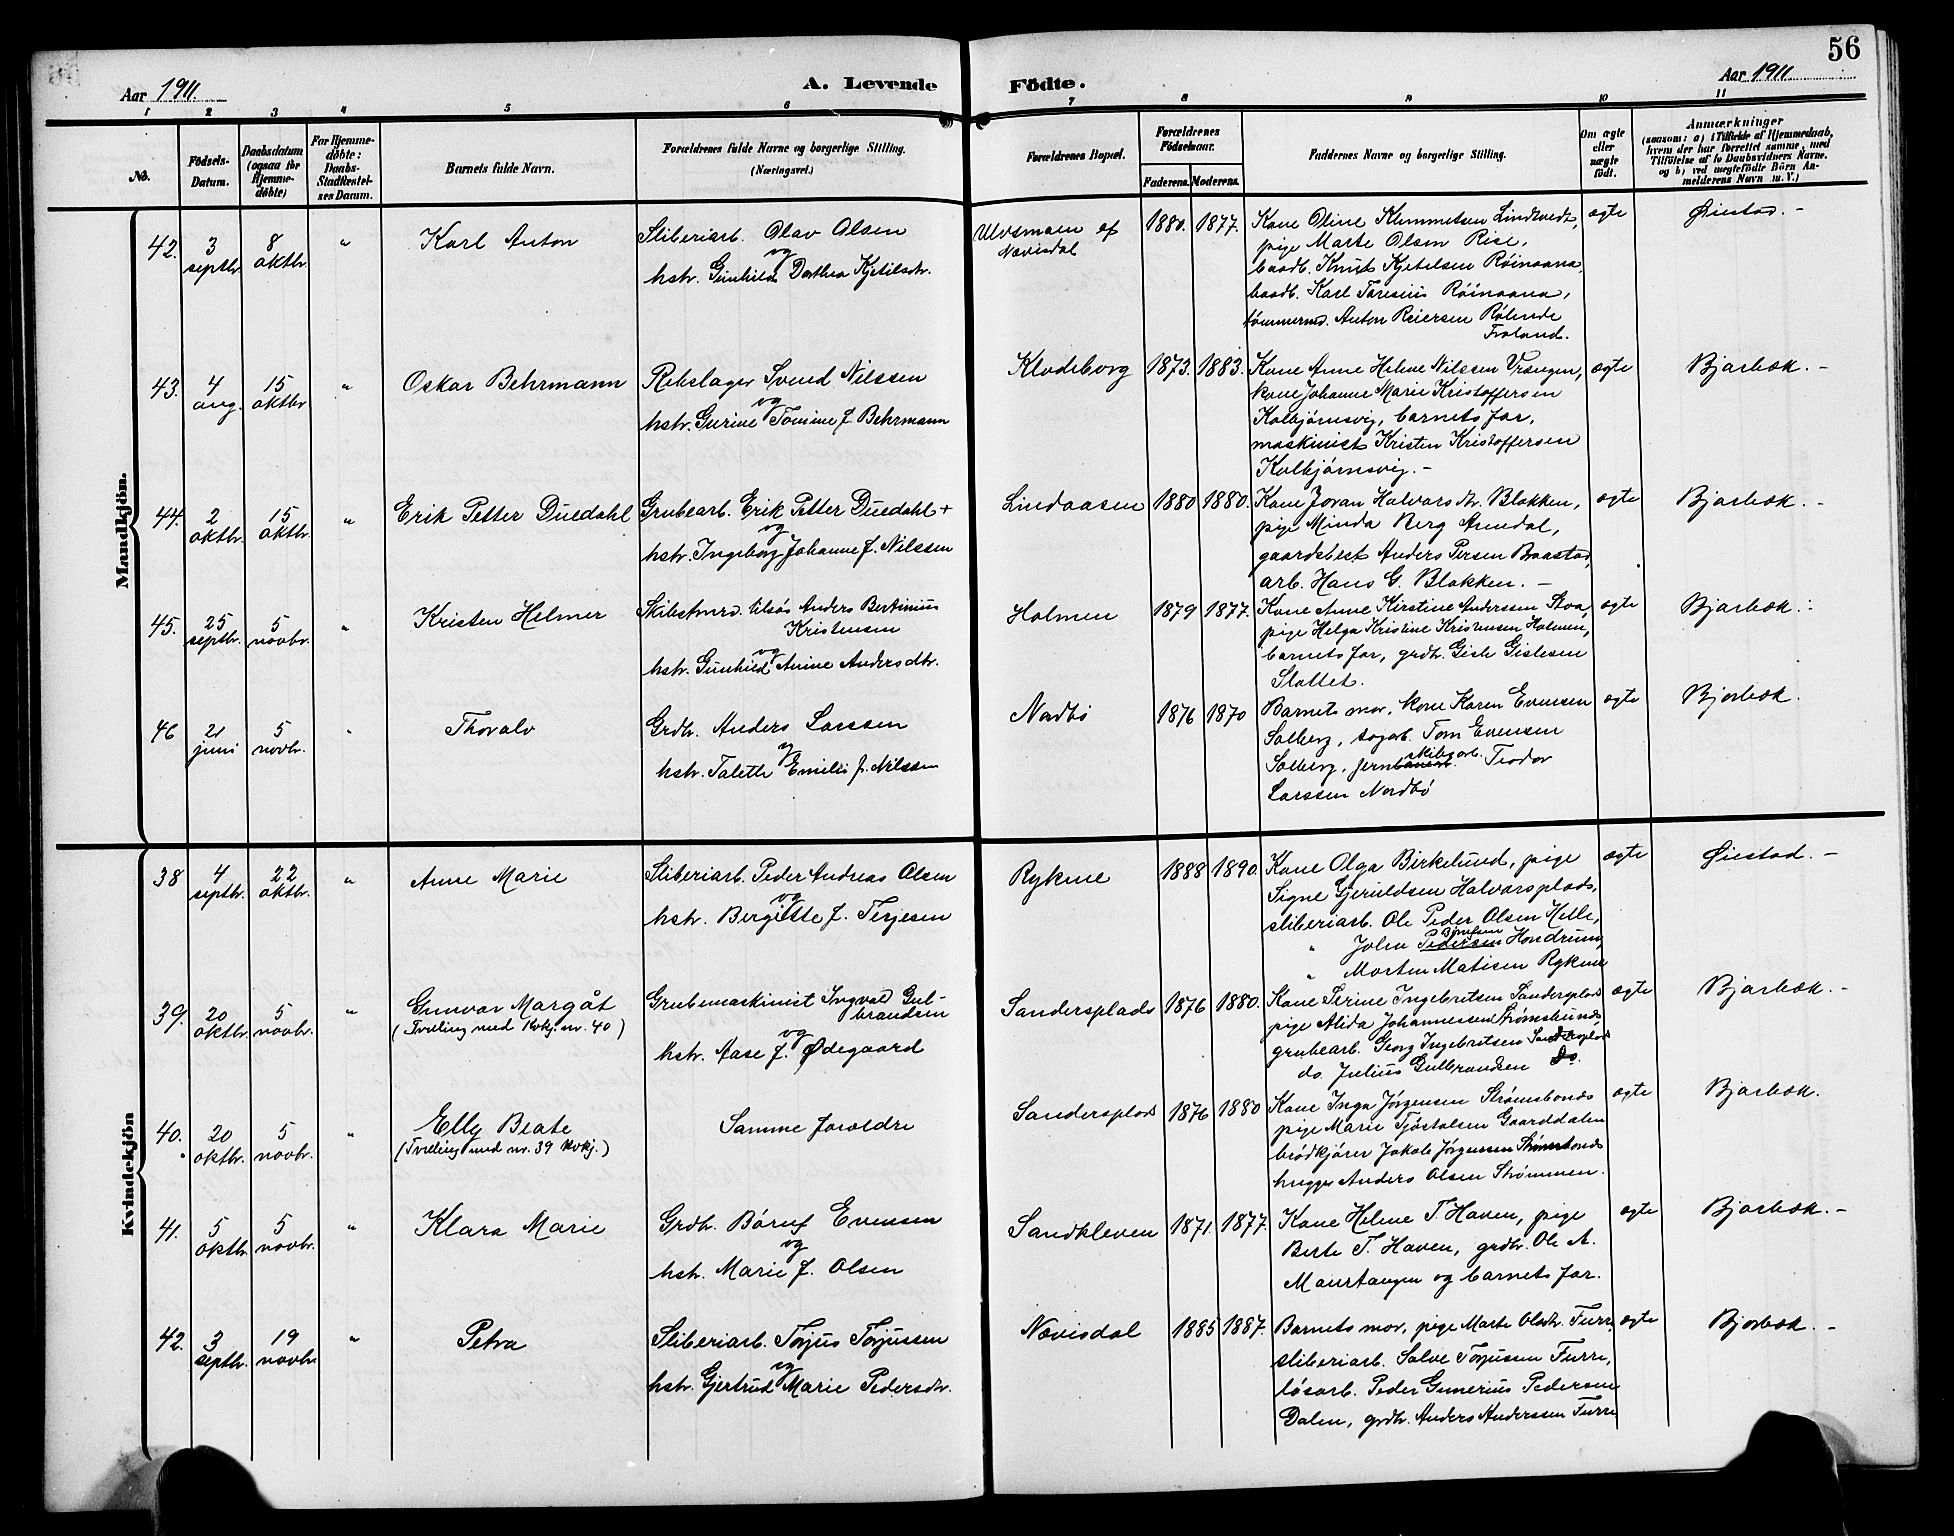 56
Aar 1911
A. Levende Födte.
Aar 1911
1 2 3 4 5 6 7 8 9 10 11
No.
Födsels-
Datum.
Daabsdatum
(ogsaa for
Hjemme-
döbte)
Far Hjemme-
döbte:
Daabs-
Stadfæstel-
ses Datum.
Barnets fulde Navn.
Forældrenes fulde Navne og borgerlige Stilling.
(Næringsvei.)
Forældrenes Bopæl.
Forældrenes
Födselsaar.
Faderens. Moderens.
Faddernes Navne og borgerlige Stilling.
Om ægte
eller
uægte
födt.
Anmærkninger
(saasom: a) i Tilfælde af Hjemmedaab,
hvem der har forrettet samme, med
Tilföielse af to Daabsvidners Navne.
og b) ved uægtefödte Börn An-
melderens Navn m. V.)
Mandkjön.
42. 3 septbr. 8 oktbr. " Karl Anton
Sliberiarb. Olav Olsen
og
hstr. Gunhild Dorthea Kjetilsdtr.
Ulvsmoen af
Nævisdal
1880. 1877.
Kone Oline Klemmetsen Lindtveit,
pige Marte Olsen Rise,
baadb. Knut Kjetelsen Röinaana,
baadb. Karl Taresius Röinaana,
tømmermd. Anton Reiersen Rølende
Froland.
ægte Øiestad. -
43. 4 aug. 15 oktbr " Oskar Behrmann
Rebslager Svend Nilssen
og
hstr. Gurine Tomine f. Behrmann
Klodeborg 1873. 1883.
Kone Anne Helene Nilssen Vrængen,
kone Johanne Marie Kristoffersen
Kolbjørnsvig, barnets far,
maskinist Kristen Kristoffersen
Kolbjørnsvig. -
ægte Bjorbæk. -
44. 2 oktbr. 15 oktbr. " Erik Petter Duedahl
Grubearb. Erik Petter Duedahl +
og
hstr. Ingeborg Johanne f. Nilssen
Lindaasen 1880 1880.
Kone Joran Halvorsdtr. Blakken,
pige Minda Berg Arendal,
gaardsbest. Anders Persen Braastad,
arb. Hans G. Blakken. -
ægte Bjorbæk. -
45. 25 septbr. 5 novbr. " Kristen Helmer
Skibstmrd. tilsös Anders Bertinius
Kristensen
og
hstr. Gunhild Anine Andersdtr.
Holmen 1879 1877.
Kone Anne Kirstine Anderssen Stoa,
pige Helga Kristine Kristensen Holmen,
barnets far, grdbr. Gisle Gislesen
Slottet.
ægte Bjorbæk. -
46 21 juni 5 novbr. " Thoralv
Grdbr. Anders Larssen
og
hstr. Talette Emilie f. Nilssen
Nordbö 1876 1870
Barnets mor, kone Karen Evensen
Solberg, sagarb. Tom Evensen
skibsarb.
Solberg, jernbanearb. Teodor
Larssen Nordbö
ægte Bjorbæk.
Kvindekjön
38 4 septbr. 22 oktbr. " Anne Marie
Sliberiarb. Peder Andreas Olsen
og
hstr. Bergitte f. Terjesen
Rykene 1888 1890.
Kone Olga Birkelund, pige
Signe Gjeruldsen Halvorsplads,
sliberiarb. Ole Peder Olsen Helle,
" John Pedersen Hondrum,
" Morten Matisen Rykene
ægte Øiestad. -
39. 20 oktbr. 5 novbr. " Gunvor Margåt
(Tvilling med Kvkj. nr. 40)
Grubemaskinist Ingvald Gul-
brandsen
og
hstr. Aase f. Ødegaard
Sandersplads 1876 1880.
Kone Serine Ingebritsen Sandersplads
pige Alida Johannessen Strømsbunds
grubearb. Georg Ingebritsen Sandersplads
do. Julius Gulbrandsen Do.
ægte Bjorbæk. -
40. 20 oktbr. 5 novbr. " Elly Beate
(Tvilling med nr. 39 Kvkj.)
Samme forældre
Sandersplads 1876 1880
Kone Inga Jørgensen Strømsbonds
pige Marie Tjöstolsen Gaarddalen
brödkjörer Jakob Jørgensen Strømsbonds
hugger Anders Olsen Strømmen.
ægte Bjorbæk.
41. 5 oktbr. 5 novbr. " Klara Marie
Grdbr. Børuf Evensen
og
hstr. Marie f. Olsen
Sandkleven 1871. 1877.
Kone Helene T. Haven, pige
Berte T. Haven, grdbr. Ole A.
Maurtangen og barnets far.
ægte Bjorbæk. -
42. 3 septbr. 19 novbr. " Petra
Sliberiarb. Torjus Torjussen
og
hstr. Gjertrud Marie Pedersdtr.
Nævisdal 1885 1887.
Barnets mor, pige Marte Olsdtr. Furre,
sliberiarb. Salve Torjussen Furre,
løsarb. Peder Gunerius Pedersen
Dalen, grdbr. Anders Anderssen Furre
ægte Bjorbæk. -